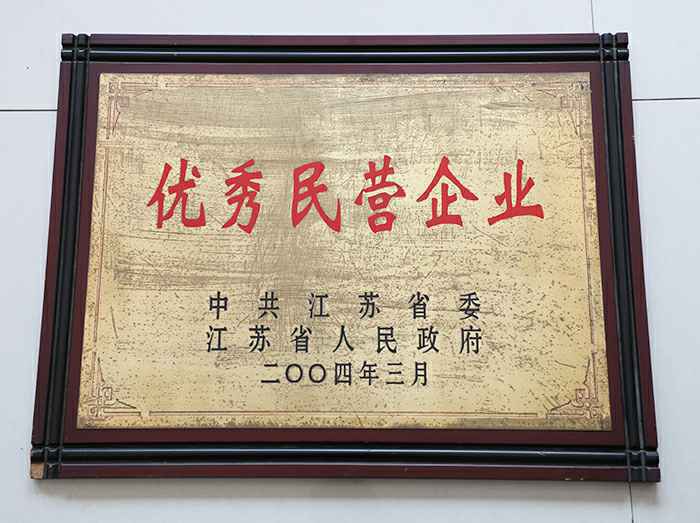 优秀民营企业
中共江苏省委
江苏省人民政府
二〇〇四年三月